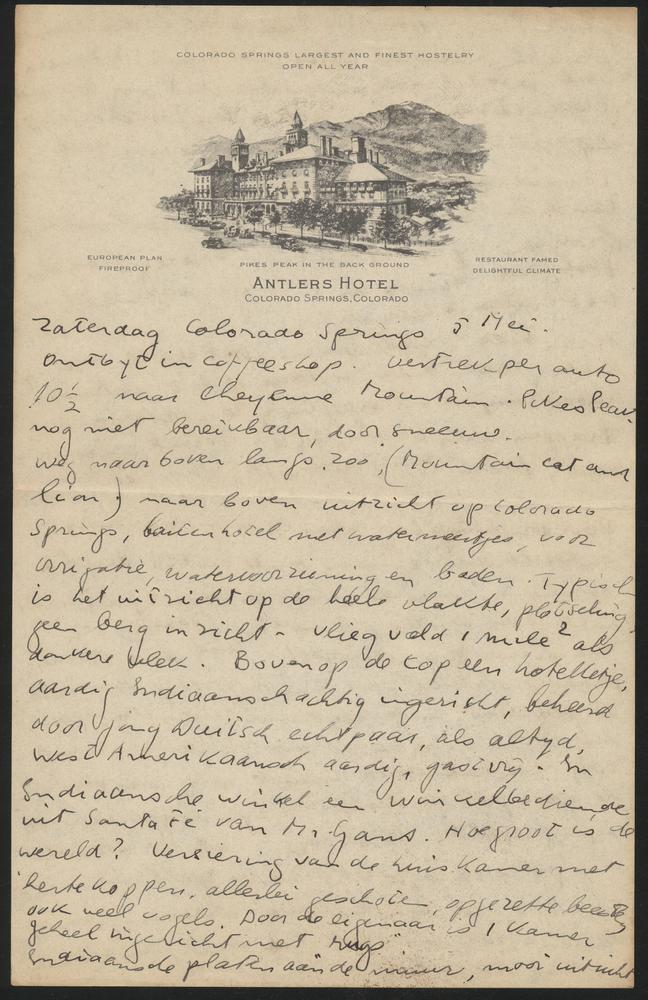 COLORADO SPRINGS LARGEST AND FINEST HOSTELRY
OPEN ALL YEAR
EUROPEAN PLAN
FIREPROOF
PIKES PEAK IN THE BACK GROUND
RESTAURANT FAMED
DELIGHTFUL CLIMATE
ANTLERS HOTEL
COLORADO SPRINGS, COLORADO
Zaterdag Colorado Springs 5 Mei.
Ontbyt in coffeeshop. Vertrek per auto
10½ naar Cheyenne Mountain. Pikes Peak
nog niet bereikbaar, door sneeuw.
Weg naar boven langs zoo, (Mountain cat and
lion) naar boven uitzicht op Colorado
Springs, buitenhotel met watermeertjes, voor
irrigatie, watervoorziening en baden. Typisch
is het uitzicht op de heele vlakte, plotseling
geen berg in zicht - vliegveld 1 mile² als
donkere vlek. Bovenop de kop een hotelletje,
aardig Indiaanschachtig ingericht, beheerd
door jong Duitsch echtpaar, als altyd,
West Amerikaansch aardig, gastvrij. In
Indiaansche winkel een winkelbediende
uit Santa Fé van Mr. Gans. Hoe groot is de
wereld? Versiering van de huiskamer met
hertekoppen, allerlei geschoten, opgezette beesten
ook veel vogels. Door de eigenaar is 1 kamer
geheel ingericht met "rugs"
Indiaansche platen aan de muur, mooi uitzicht